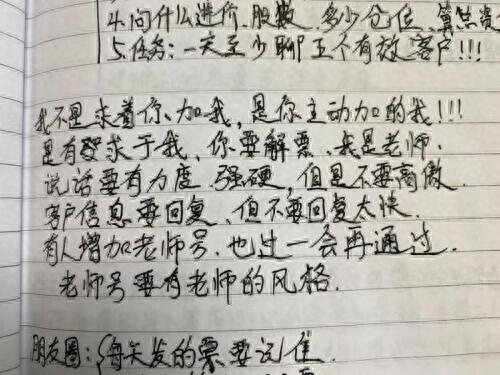 4.问什么进价、股数、多少仓位、算其资
5.任务:一天至少聊五个有效客户!!!
我不是求着你、加我,是你主动加的我!!!
是有求于我、你要解票、我是老师、
说话要有力度.强硬,但是不要高傲.
客户信息要回复、但不要回复太快.
有人增加老师号、也过一会再通过.
老师号要有老师的风格.
朋友圈:每天发的票要记住.